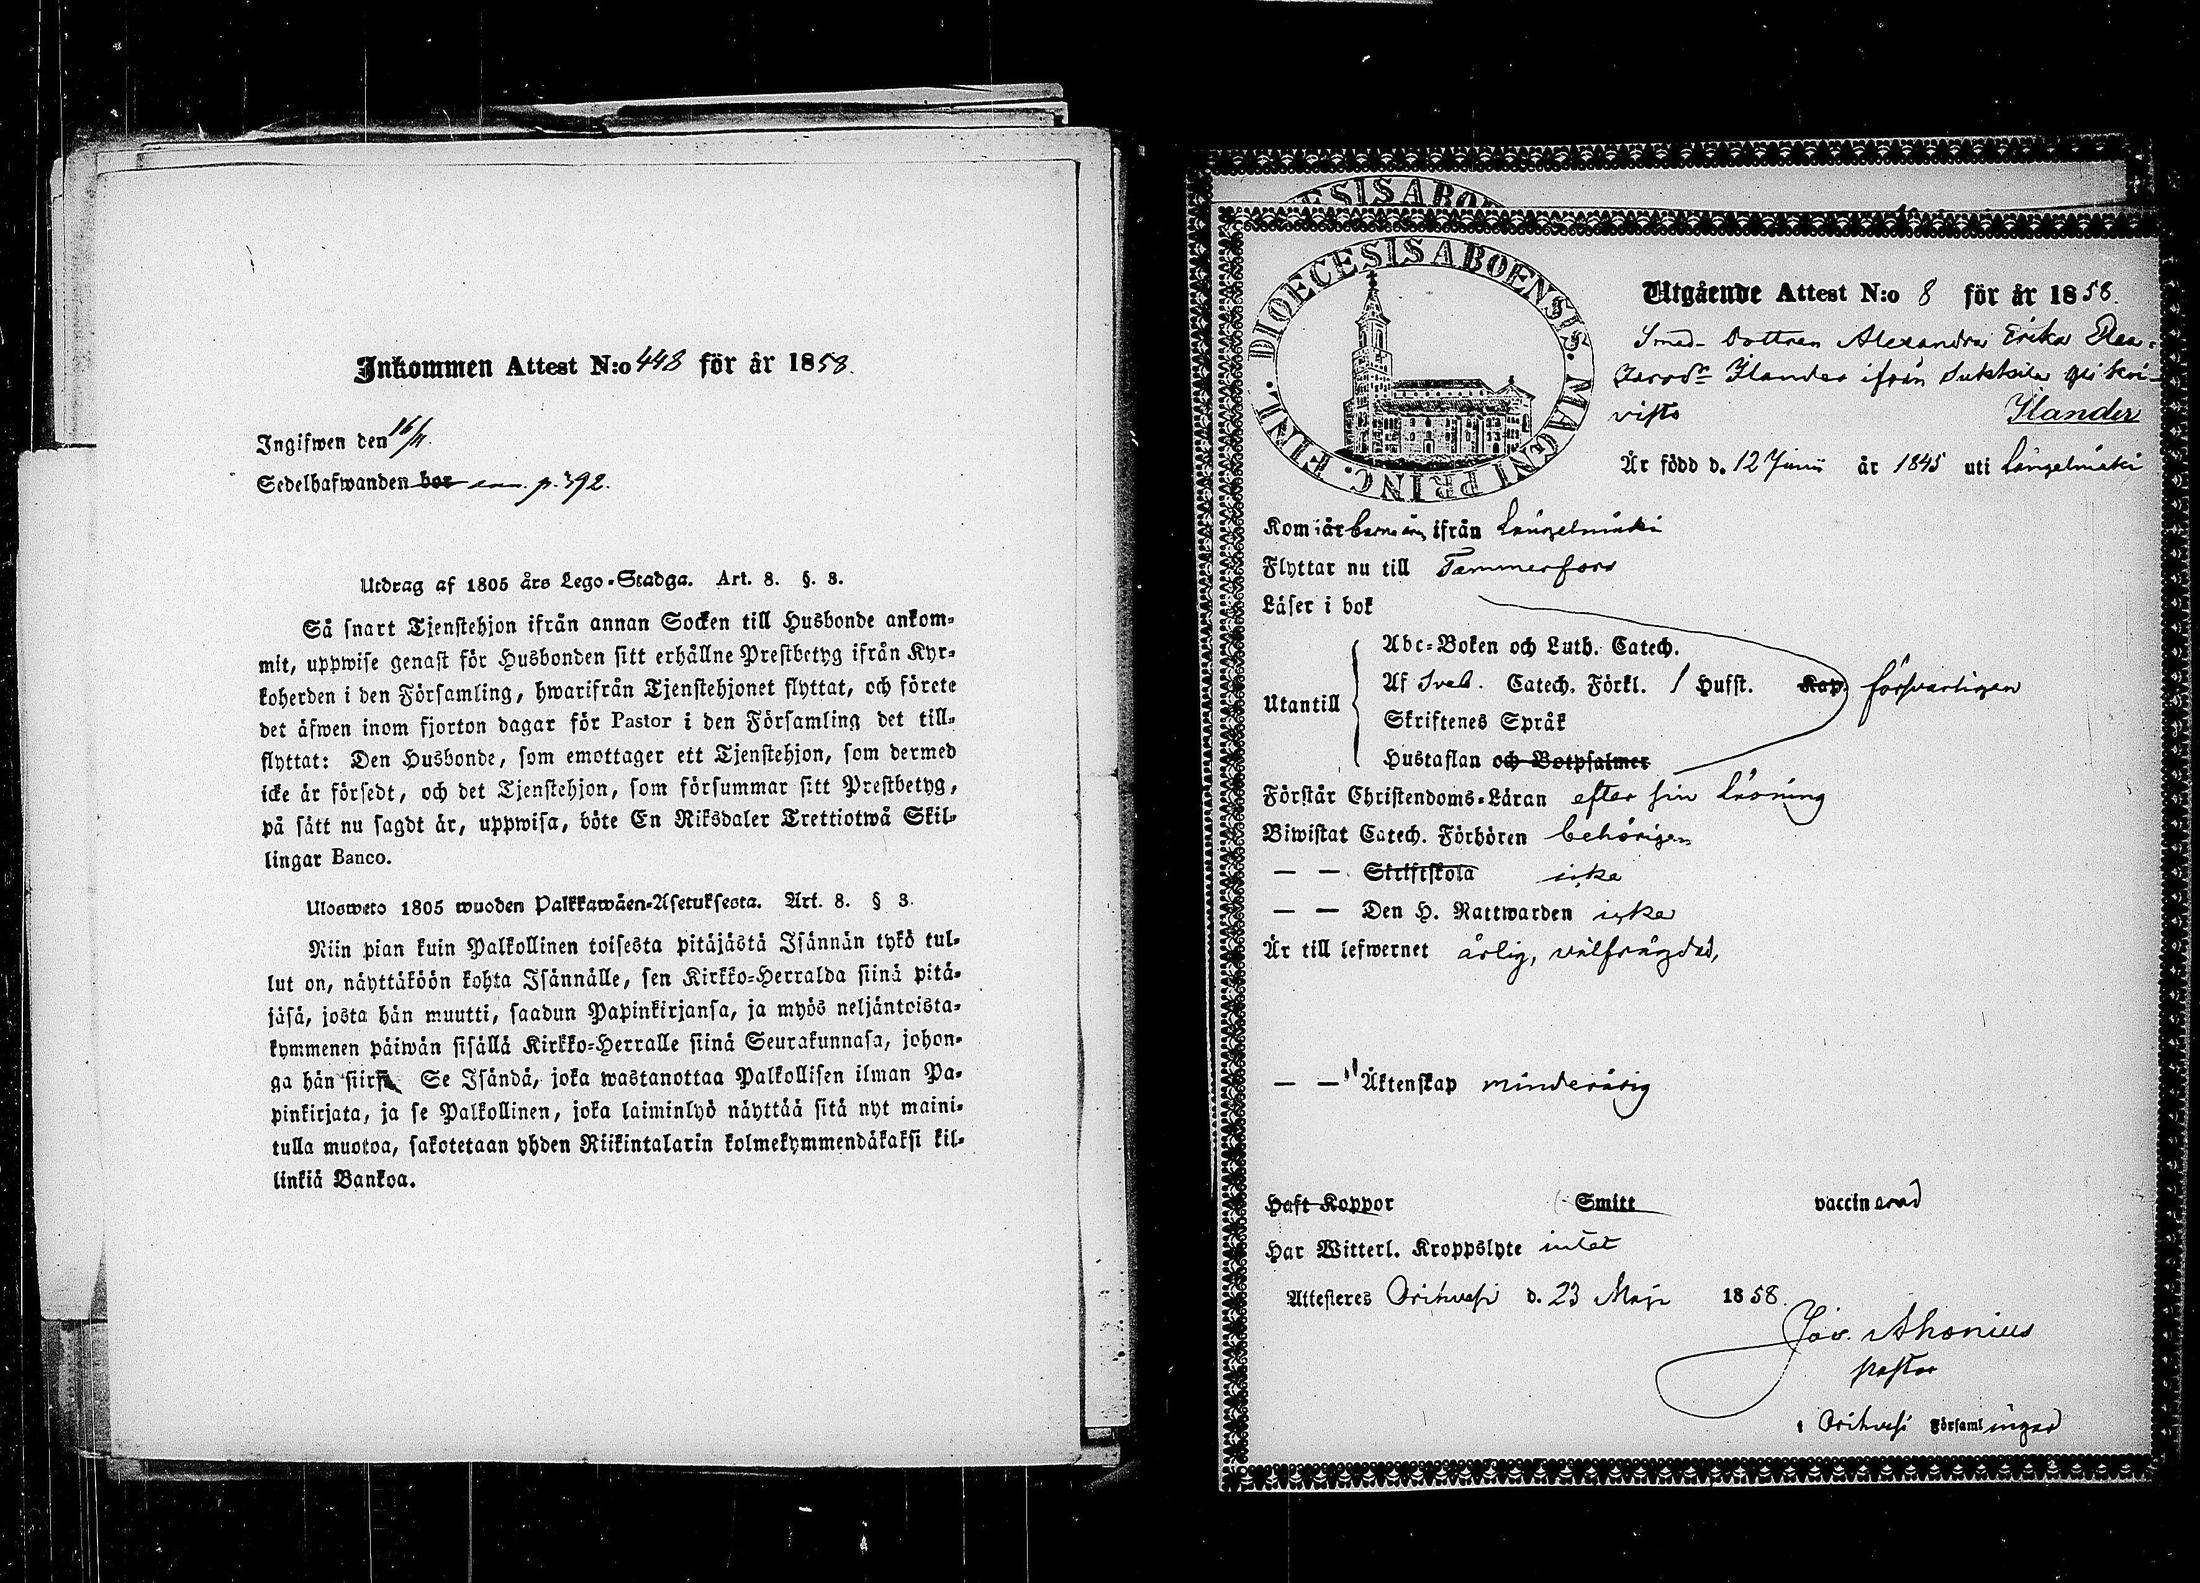 Inkommen Attest N:o 448 för år 1858.
Ingifwen den 16/11.
Sedelhafwanden bor p. 392.
Utdrag af 1805 års Lego-Stadga. Art. 8. §. 3.
Så snart Tjenstehjon ifrån annan Socken till Husbonde ankom-
mit, uppwise genast för Husbonden sitt erhållne Prestbetyg ifrån Kyr-
koherden i den Församling, hwarifrån Tjenstehjonet flyttat, och förete
det äfwen inom fjorton dagar för Pastor i den Församling det till-
flyttat: Den Husbonde, som emottager ett Tjenstehjon, som dermed
icke är försedt, och det Tjenstehjon, som försummar sitt Prestbetyg,
på sätt nu sagdt är, uppwisa, böte En Riksdaler Trettiotwå Skil-
lingar Banco.
Ulosweto 1805 wuoden Palkkawäen-Asetuksesta. Art. 8. § 3.
Niin pian kuin Palkollinen toisesta pitäjästä Isännän tykö tul-
lut on, näyttäköön kohta Isännälle, sen Kirkko-Herralda siinä pitä-
jäsä, josta hän muutti, saadun Papinkirjansa, ja myös neljäntoista-
kymmenen päiwän sisällä Kirkko-Herralle siinä Seurakunnasa, johon-
ga hän siirs Se Isändä, joka wastanottaa Palkollisen ilman Pa-
pinkirjata, ja se Palkollinen, joka laiminlyö näyttää sitä nyt maini-
tulla muotoa, sakotetaan yhden Riikintalarin kolmekymmendäkaksi kil-
linkiä Bankoa.
ESIS ABO
DIOECESIS ABOENSIS. MAGNI PRINC. FINL.
Utgående Attest N:o 8 för år 1858.
Smed-Dottren Alexandra Erika
Ilander ifrån
Ilander
Är född d. 12 Junii år 1845 uti Längelmäki
Kom i år barn ifrån Längelmäki
Flyttar nu till Tammerfors
Läser i bok
Utantill
Abc-Boken och Luth. Catech.
Af Sveb. Catech. Förkl. / Hufst. Kap. försvarligen
Skriftenes Språk
Hustaflan och Botpsalmer
Förstår Christendoms-Läran efter sin läsning
Biwistat Catech. Förhören behörigen
— — Skriftskola icke
— — Den H. Nattwarden icke
Är till lefwernet ärlig, välfrägdad,
— — Äktenskap minderårig
Haft Koppor Smitt vaccinerad
Har Witterl. Kroppslyte intet
Attesteras Orihvesi d. 23 Maji 1858.
Joh. Ahonius
pastor
i Orihvesi Församlingar